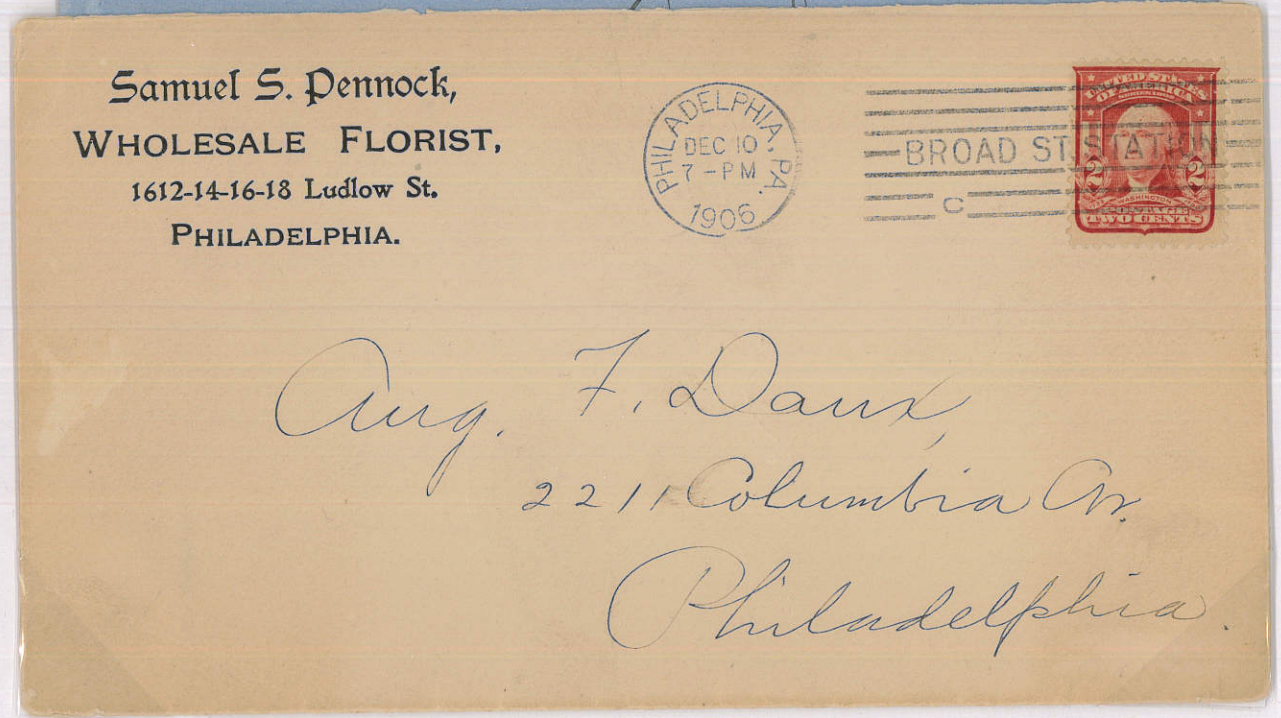 Samuel S. Pennock,
WHOLESALE FLORIST,
1612-14-16-18 Ludlow St.
PHILADELPHIA.
PHILADELPHIA, PA.
DEC 10
7-PM
1906
BROAD ST. STATION
C
UNITED STATES
OF AMERICA
2 2
WASHINGTON
POSTAGE
TWO CENTS
Aug. F. Daux,
2211 Columbia Av.
Philadelphia.